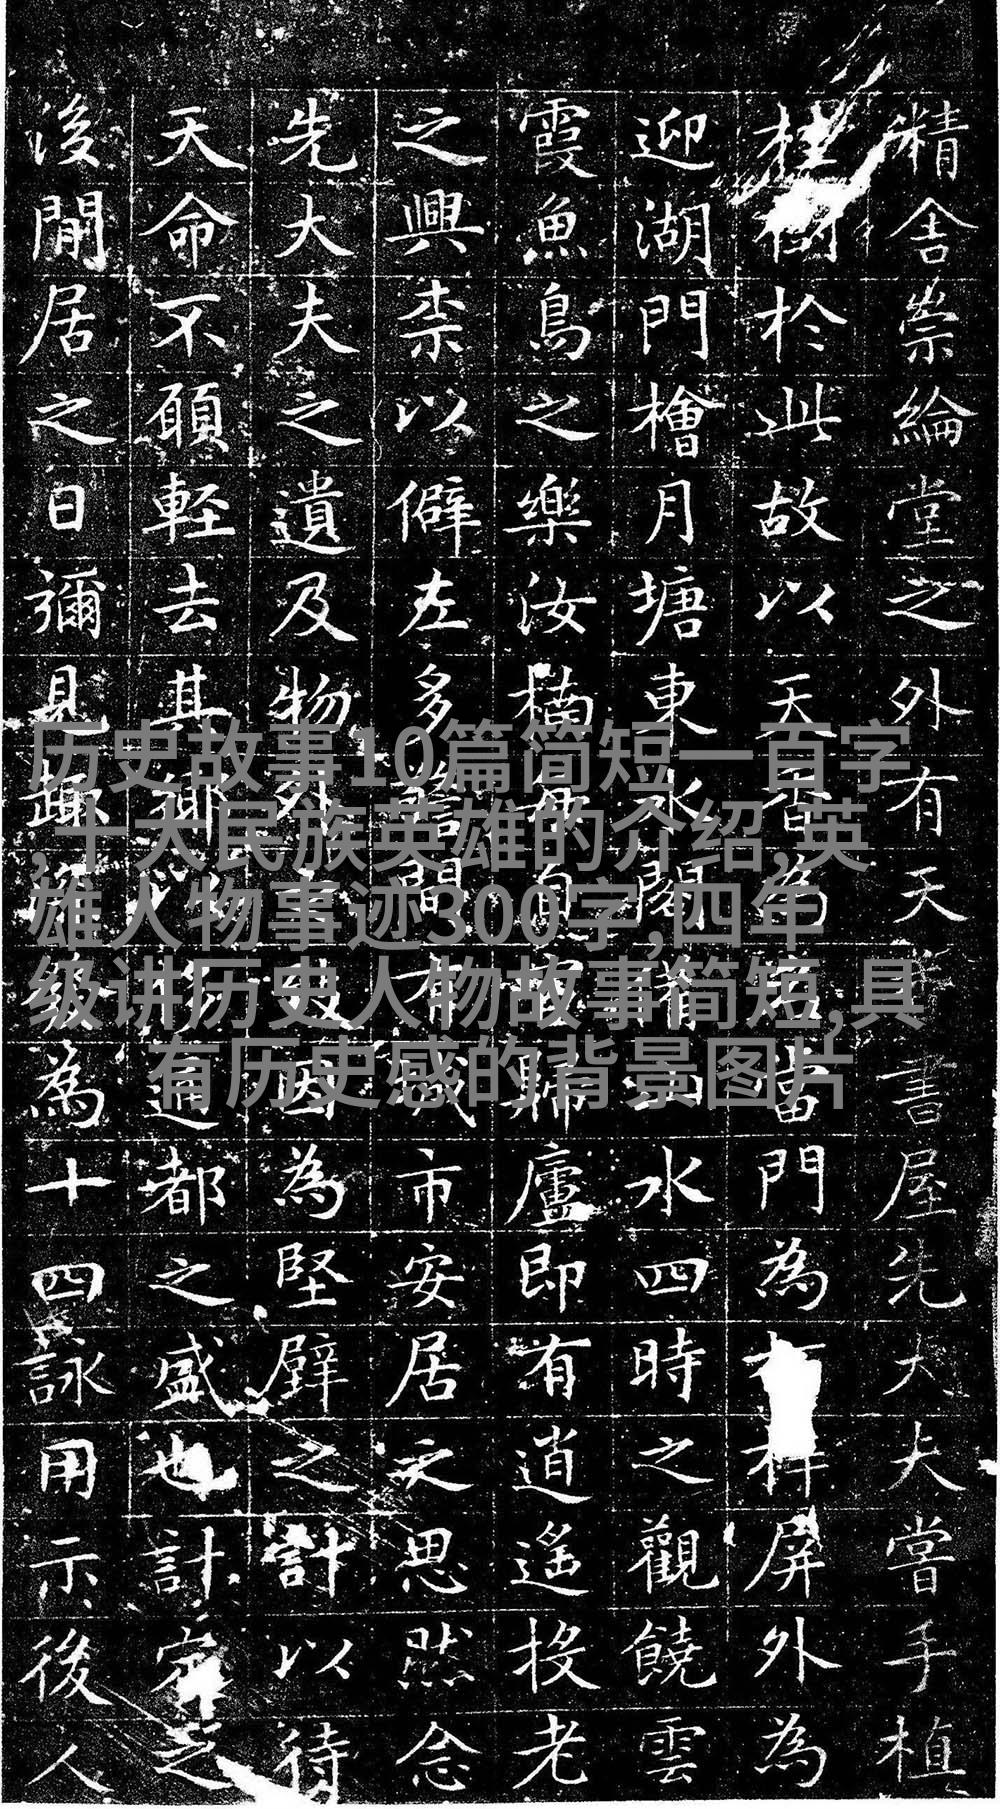 精舍崇綸堂之外有天書屋先大夫嘗手植
桂樹於此故以天香為當門為屏外為
迎湖門檜月塘東水閣水四時之觀饒雲
霞魚鳥之樂汝楠歸廬即有逍遙投老
之興柰以僻左多市安居之思然念
先大夫之遺及物外為堅壁之計以待
天命不願輕去其鄉通都之盛也計定之
後閒居之日彌見趣為十四詠用示後人
历史故事10篇简短一百字
,十大民族英雄的介绍,英
雄人物事迹300字,四年
级讲历史人物故事简短,具
有历史感的背景图片